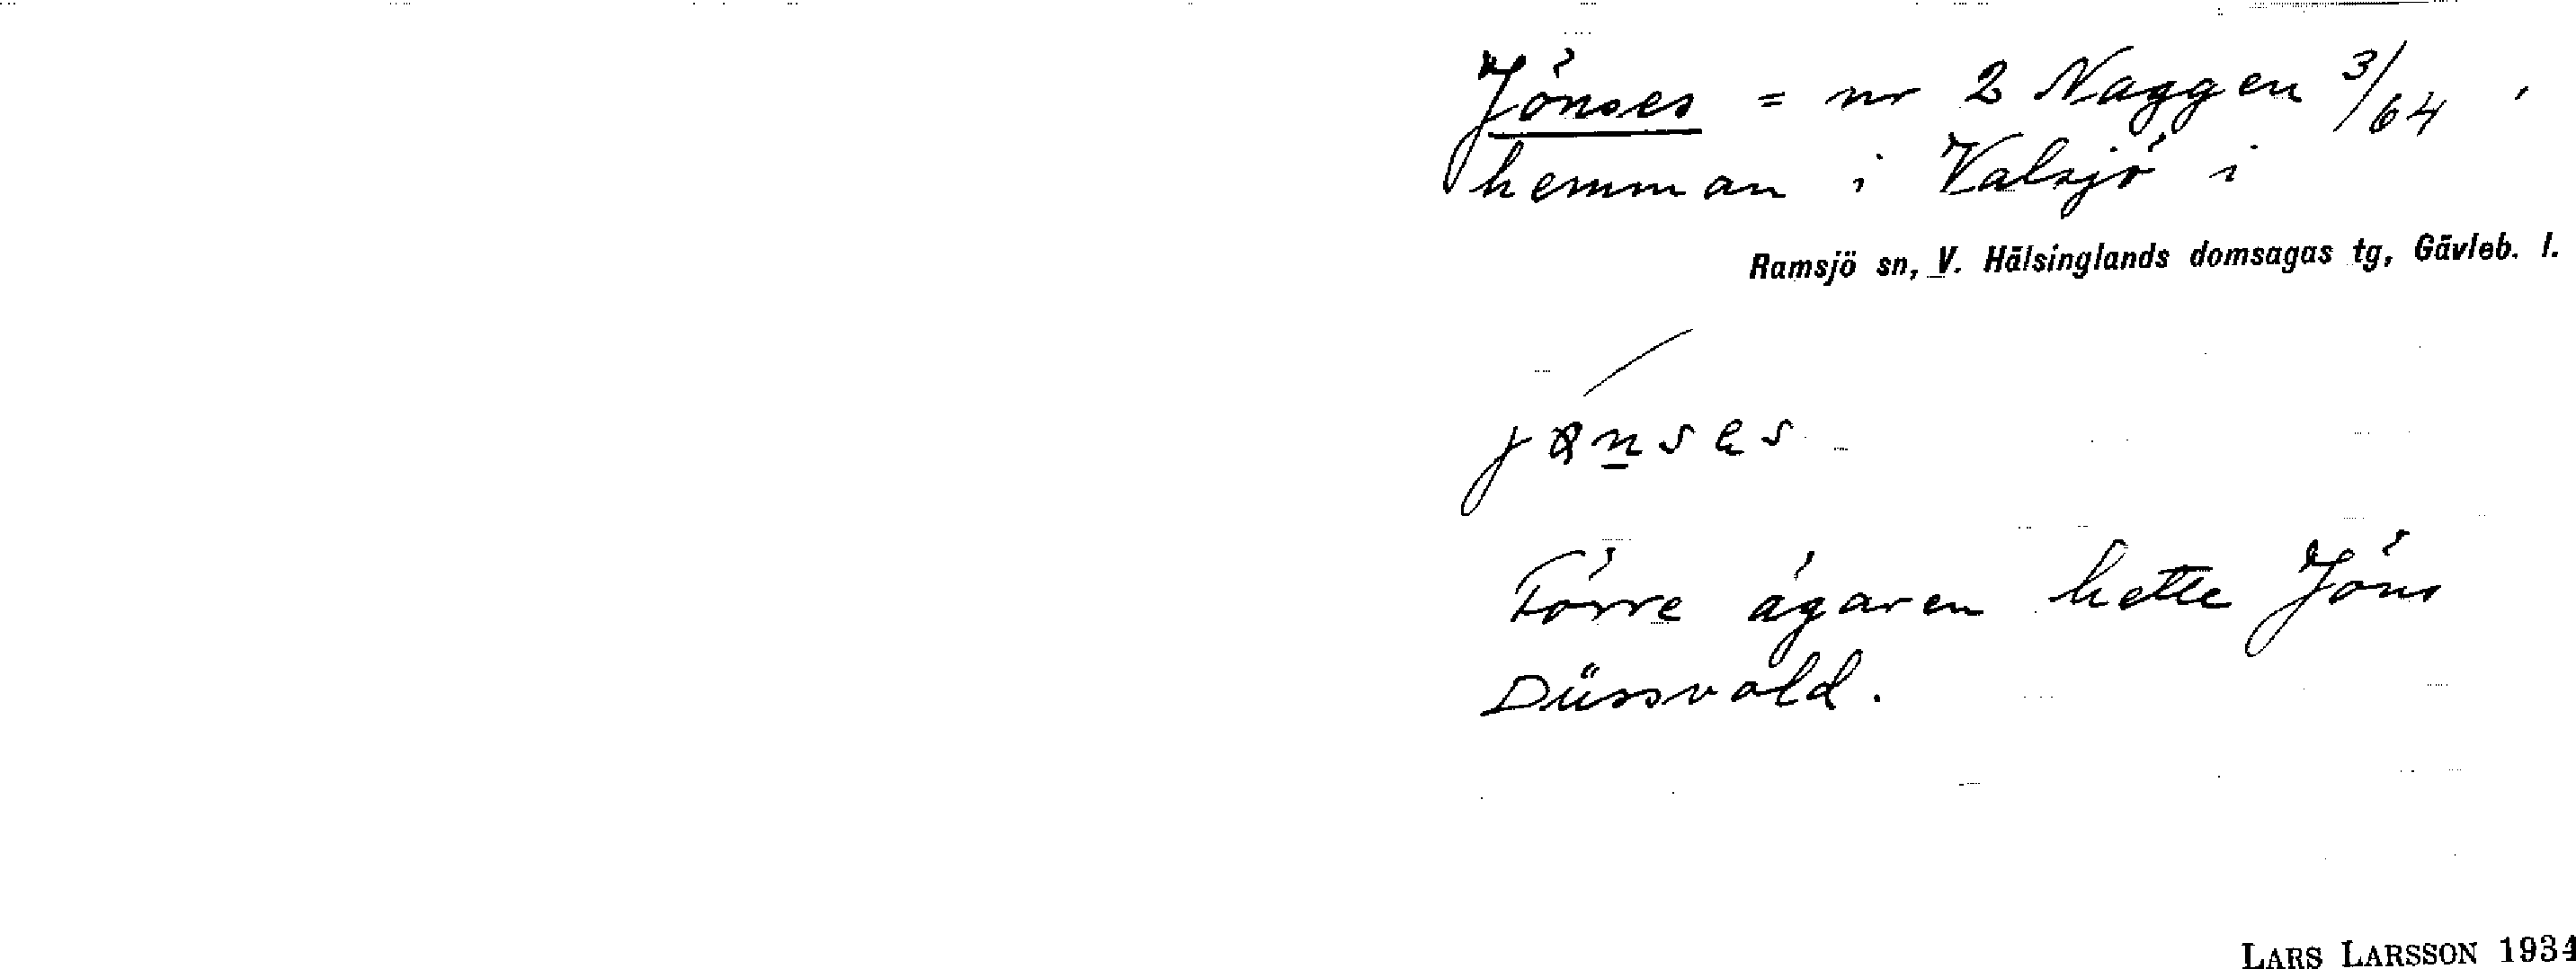 Jönses = nr 2 Naggen 3/64
hemman i Valsjö i
Ramsjö sn, V. Hälsinglands domsagas tg, Gävleb. l.
Förre ägaren hette Jöns
Düssvald.
LARS LARSSON 1934